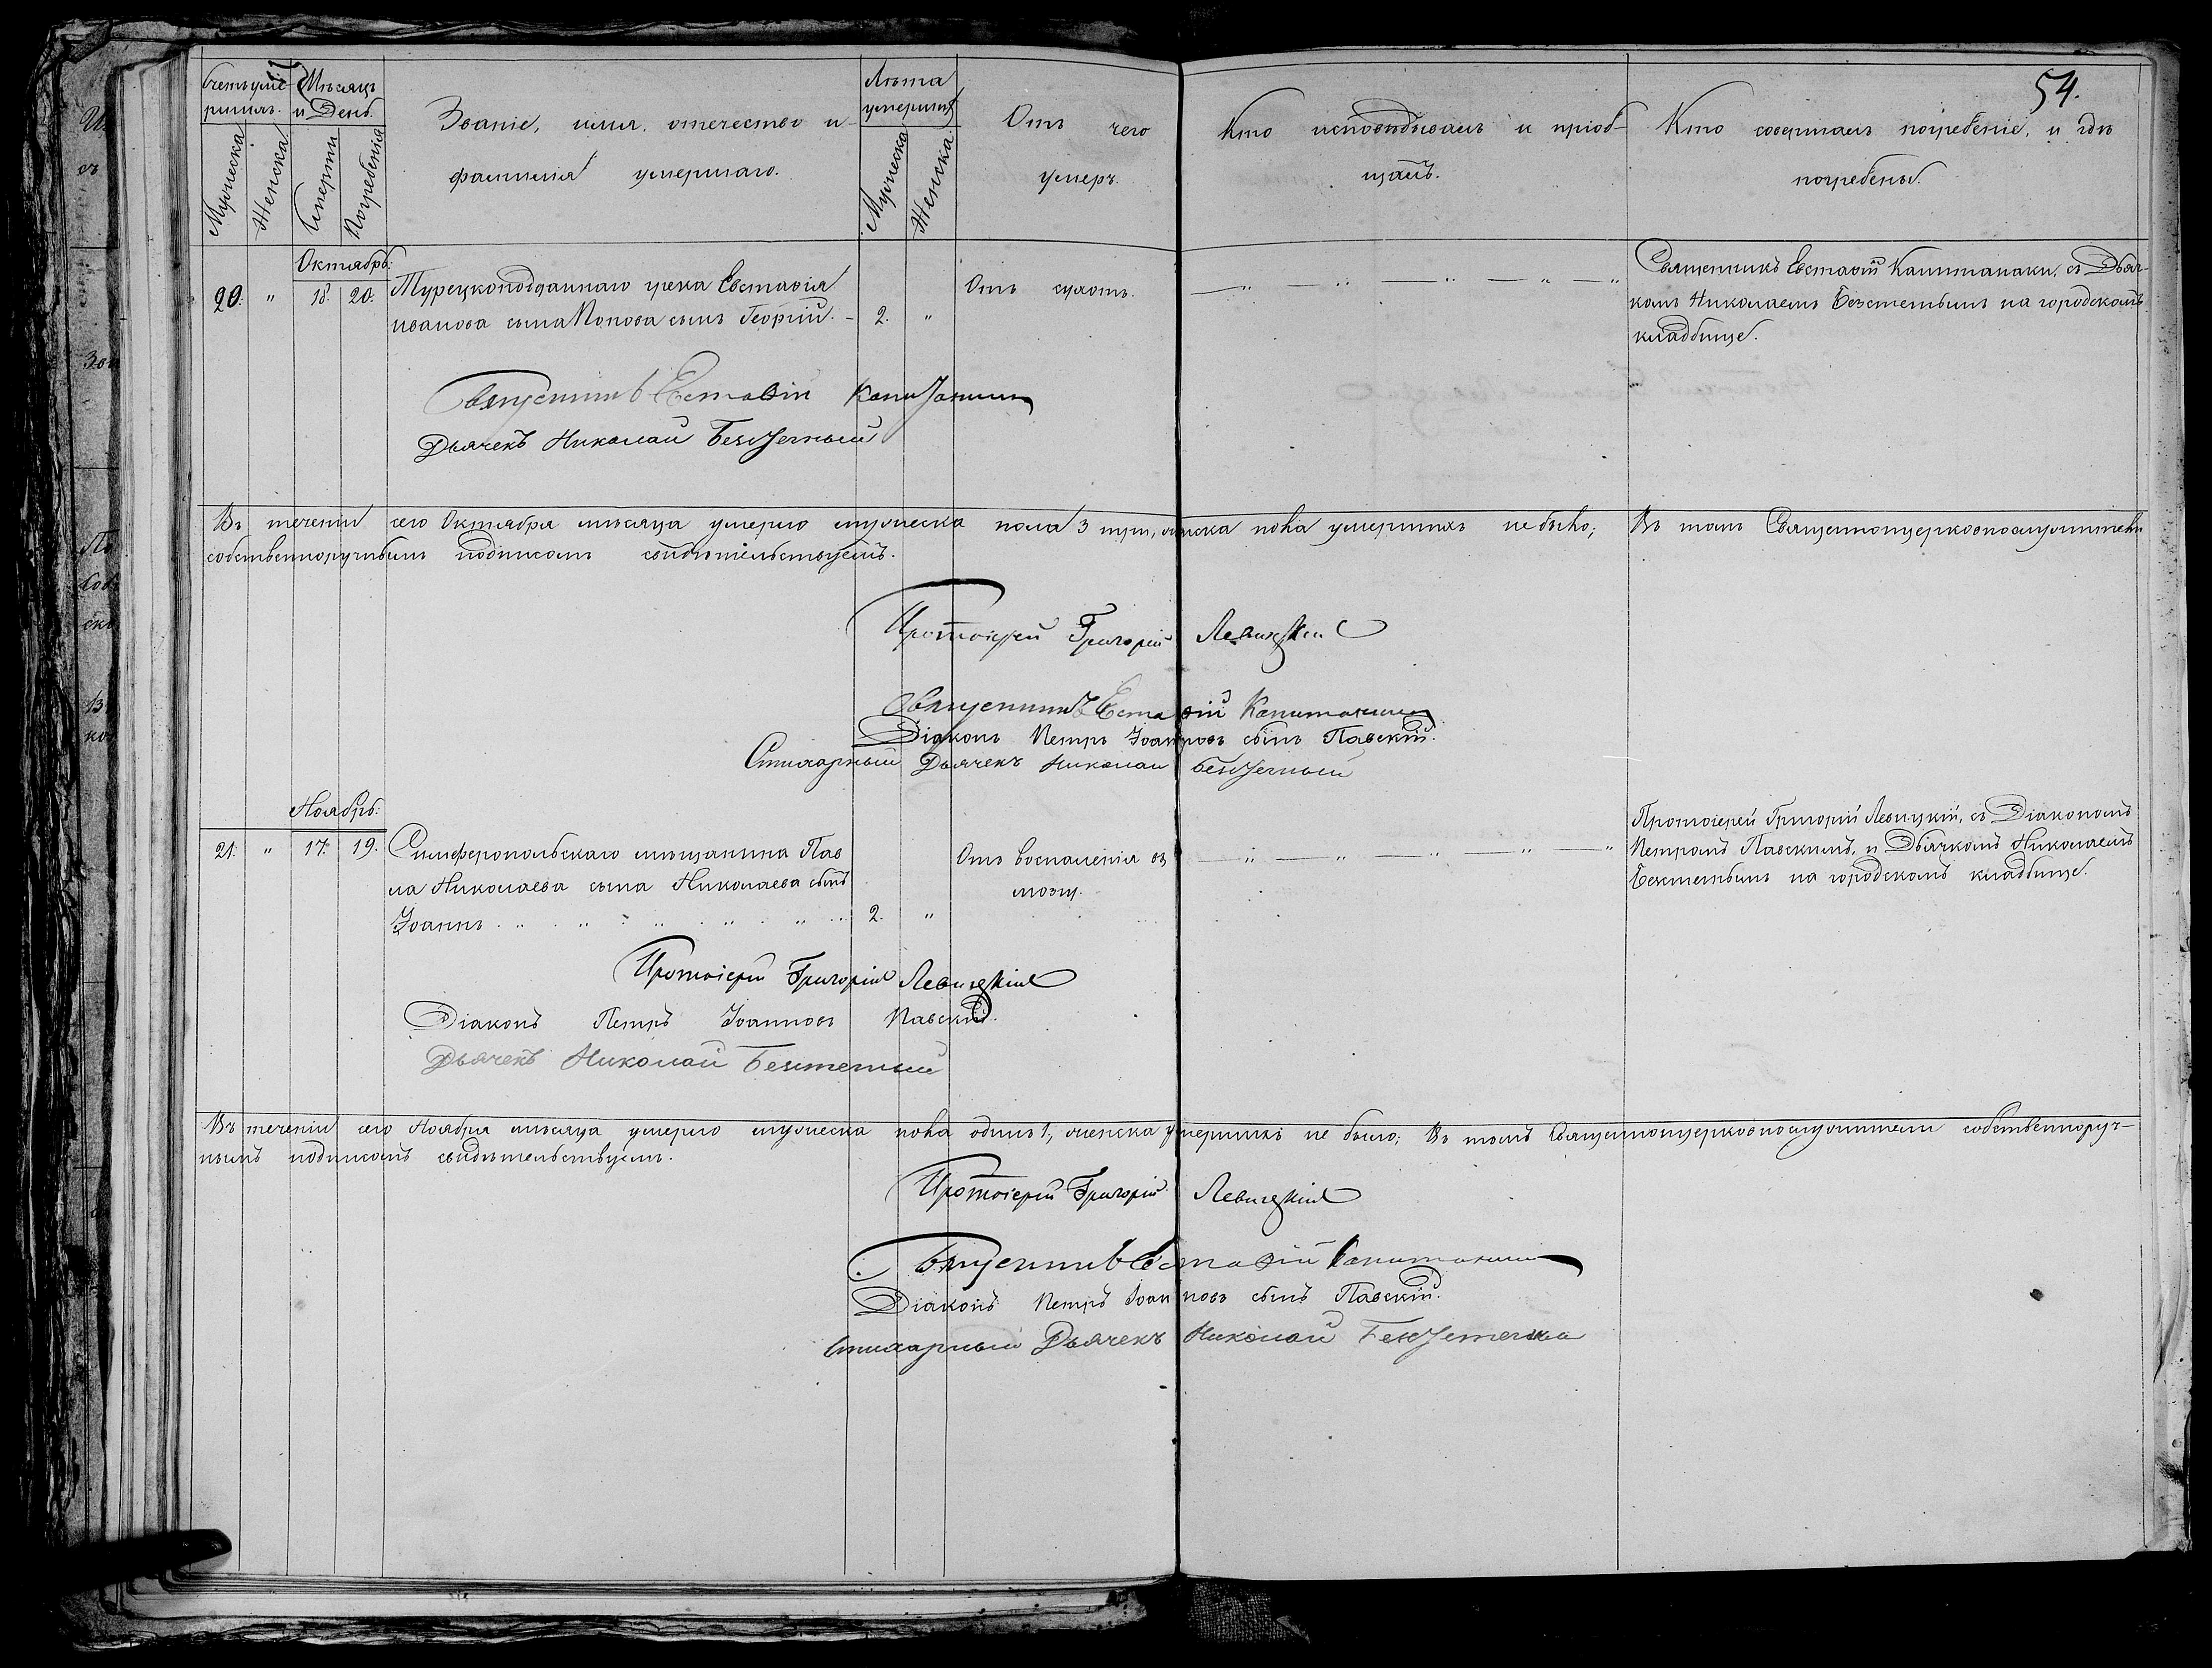 54.
Счетъ уме-
ршихъ.
Мѣсяцъ
и День.
Мужеска.
Женска.
Смерти
Погребенія
Званіе, имя, отечество и
фамилія умершаго.
Лѣта
умершихъ
Мужеска
Женска.
Отъ чего
умеръ.
Кто исповѣдывалъ и пріоб-
щалъ.
Кто совершалъ погребеніе, и гдѣ
погребены.
Октябрь:
20. " 18. 20. Турецкоподданнаго грека Евстафія
иванова сына Попова сынъ Георгій. - 2. "
Отъ сухотъ.
Священникъ Евстафій Капитанаки, съ Дьяч-
комъ Николаемъ Безстетнымъ на городскомъ
кладбище.
Священникъ Евстафій Капитанаки
Дьячекъ Николай
Въ теченіи сего Октября мѣсяца умерло мужеска пола 3 три, женска пола умершихъ не было; Въ томъ Священноцерковнослужители
собственноручнымъ подписомъ свидѣтельствуемъ.
Протоіерей Григорій Левицкій
Священникъ Евстафій Капитанаки
Діаконъ Петръ Іоанновъ сынъ Павскій.
Стихарный Дьячекъ Николай
Ноябрь:
21. " 17. 19. Симферопольскаго мѣщанина Пав
ла Николаева сына Николаева сынъ
Іоаннъ 2. "
Отъ воспаленія въ
мозгу.
Протоіерей Григорій Левицкій, съ Діакономъ
Петромъ Павскимъ, и Дьячкомъ Николаемъ
Безстетнымъ на городскомъ кладбище.
Протоіерей Григорій Левицкій
Діаконъ Петръ Іоанновъ Павскій.
Дьячекъ Николай
Въ теченіи сего Ноября мѣсяца умерло мужеска пола одинъ 1, женска умершихъ не было; Въ томъ Священноцерковнослужители собственноруч-
нымъ подписомъ свидѣтельствуемъ.
Протоіерей Григорій Левицкій
Священникъ Евстафій Капитанаки
Діаконъ Петръ Іоанновъ сынъ Павскій.
Стихарный Дьячекъ Николай